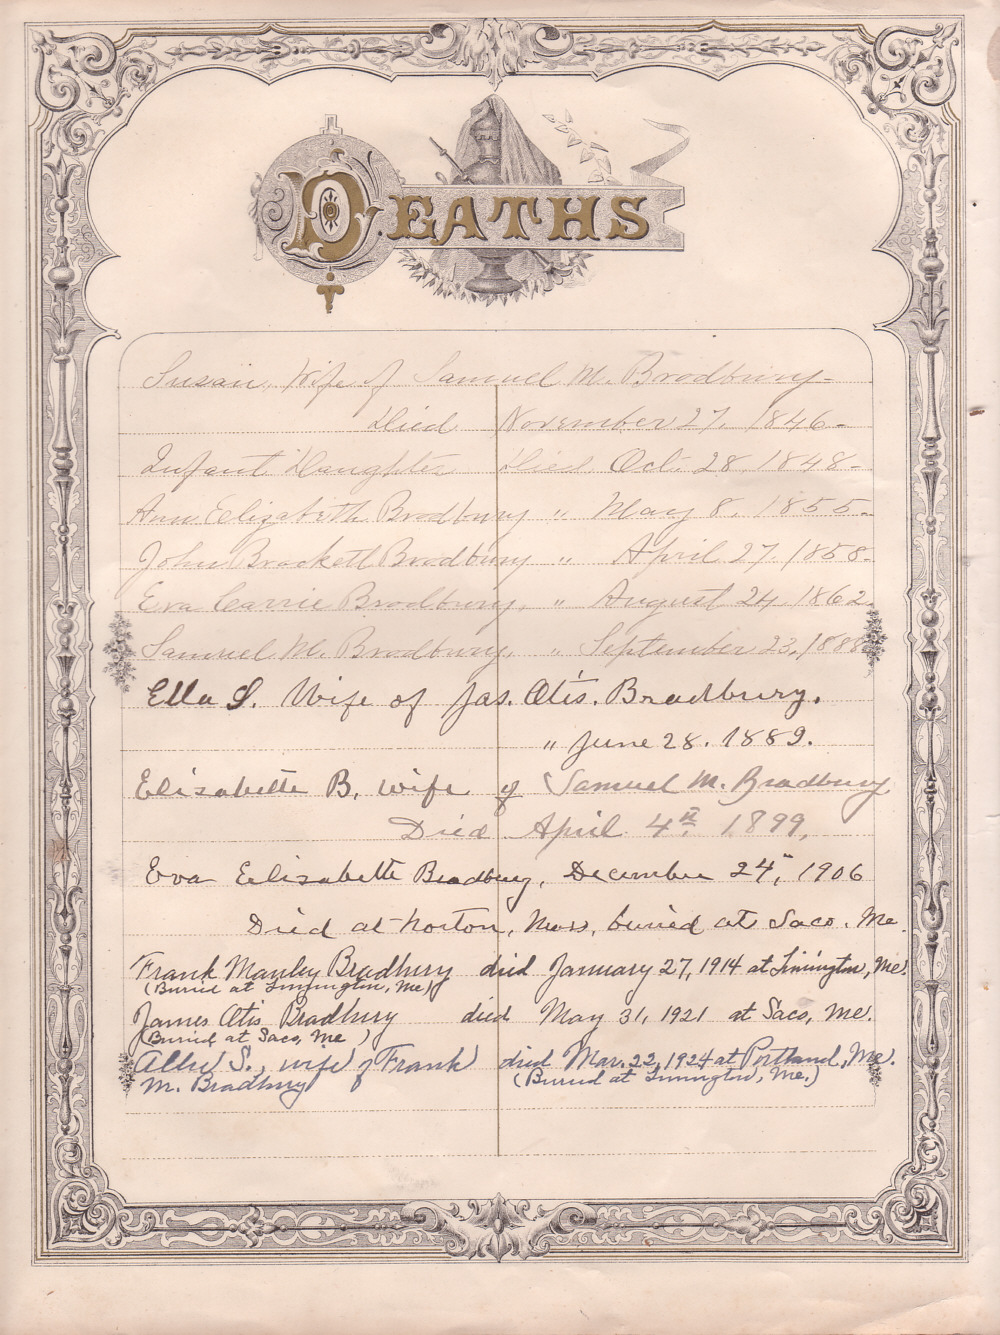 DEATHS
Susan, Wife of Samuel M. Bradbury-
Died November 27, 1846-
Infant Daughter Died Oct. 28, 1848-
Ann Elizabeth Bradbury " May 8, 1855-
John Brackett Bradbury " April 27, 1858-
Eva Carrie Bradbury, " August 24, 1862
Samuel M. Bradbury, " September 23, 1888
Ella S. Wife of Jas. Otis. Bradbury.
" June 28. 1889.
Elisabette B. wife of Samuel M. Bradbury
Died April 4th, 1899,
Eva Elisabette Bradbury, December 24", 1906
Died at Norton, Mass, buried at Saco. Me.
Frank Manley Bradbury died January 27, 1914 at Limington, Me.
(Buried at Limington, Me)
James Otis Bradbury died May 31, 1921 at Saco, Me.
(Buried at Saco, Me)
Allie S., wife of Frank died Mar. 22, 1924 at Portland, Me.
M. Bradbury (Buried at Limington, Me.)